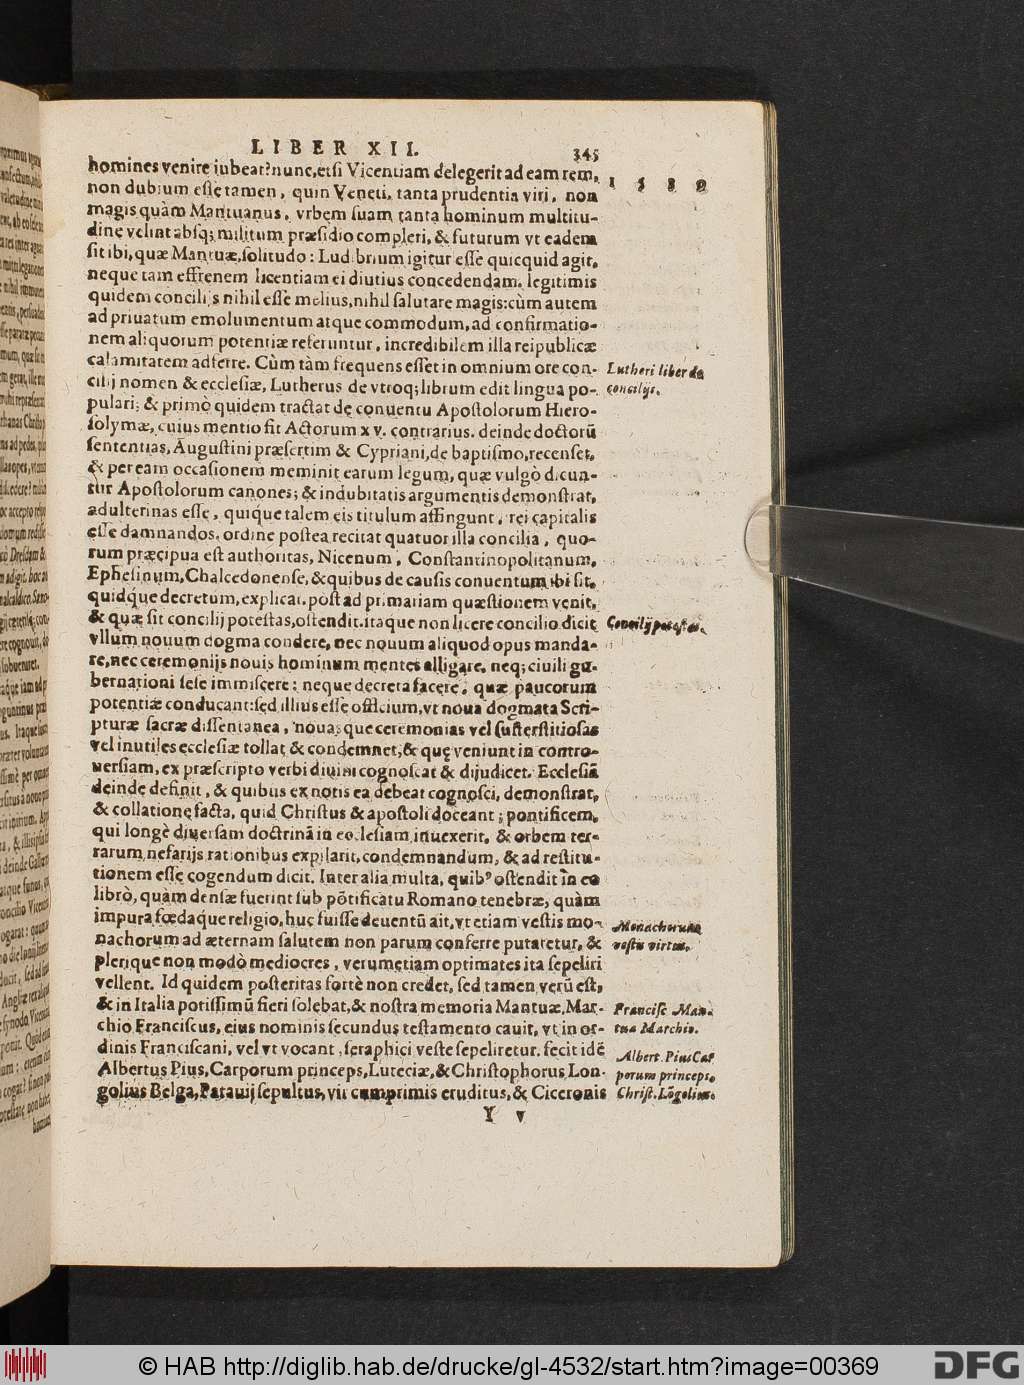 LIBER XII. 345
homines venire iubeat? nunc, etsi Vicentiam delegerit ad eam rem,
non dubium esse tamen, quin Veneti, tanta prudentia viri, non
magis quàm Mantuanus, vrbem suam tanta hominum multitu-
dine velint absq; militum præsidio compleri, & futurum vt eadem
sit ibi, quæ Mantuæ, solitudo: Ludibrium igitur esse quicquid agit,
neque tam effrenem licentiam ei diutius concedendam. legitimis
quidem concilijs nihil esse melius, nihil salutare magis: cùm autem
ad priuatum emolumentum atque commodum, ad confirmatio-
nem aliquorum potentiæ referuntur, incredibilem illa reipublicæ
calamitatem adferre. Cùm tàm frequens esset in omnium ore con-
cilij nomen & ecclesiæ, Lutherus de vtroq; librum edit lingua po-
pulari: & primò quidem tractat de conuentu Apostolorum Hiero-
solymæ, cuius mentio fit Actorum xv. contrarius. deinde doctorū
sententias, Augustini præsertim & Cypriani, de baptismo, recenset,
& per eam occasionem meminit earum legum, quæ vulgò dicun-
tur Apostolorum canones; & indubitatis argumentis demonstrat,
adulterinas esse, quique talem eis titulum affingunt, rei capitalis
esse damnandos. ordine postea recitat quatuor illa concilia, quo-
rum præcipua est authoritas, Nicenum, Constantinopolitanum,
Ephesinum, Chalcedonense, & quibus de causis conuentum ibi sit,
quidque decretum, explicat. post ad primariam quæstionem venit,
& quæ sit concilij potestas, ostendit. itaque non licere concilio dicit
vllum nouum dogma condere, nec nouum aliquod opus manda-
re, nec ceremonijs nouis hominum mentes alligare, neq; ciuili gu-
bernationi sese immiscere: neque decreta facere, quæ paucorum
potentiæ conducant: sed illius esse officium, vt noua dogmata Scri-
pturæ sacræ dissentanea, nouasque ceremonias vel susterstitiosas
vel inutiles ecclesiæ tollat & condemnet, & quę veniunt in contro-
uersiam, ex præscripto verbi diuini cognoscat & dijudicet. Ecclesiā
deinde definit, & quibus ex notis ea debeat cognosci, demonstrat,
& collatione facta, quid Christus & apostoli doceant; pontificem,
qui longè diuersam doctrinā in ecclesiam inuexerit, & orbem ter-
rarum nefarijs rationibus expilarit, condemnandum, & ad restitu-
tionem esse cogendum dicit. Inter alia multa, quibꝰ ostendit in eo
librò, quàm densæ fuerint sub pōtificatu Romano tenebræ, quàm
impura fœdaque religio, huc fuisse deuentū ait, vt etiam vestis mo-
nachorum ad æternam salutem non parum conferre putaretur, &
plerique non modò mediocres, verumetiam optimates ita sepeliri
vellent. Id quidem posteritas fortè non credet, sed tamen verū est,
& in Italia potissimū fieri solebat, & nostra memoria Mantuæ, Mar-
chio Franciscus, eius nominis secundus testamento cauit, vt in or-
dinis Franciscani, vel vt vocant, seraphici veste sepeliretur. fecit idē
Albertus Pius, Carporum princeps, Luteciæ, & Christophorus Lon-
golius Belga, Patauij sepultus, vir cumprimis eruditus, & Ciceronis
Y v
Lutheri liber de
concilijs.
Concilij potestas.
Monachorum
vestis virtus.
Francisc. Man-
tuæ Marchio.
Albert. Pius Car
porum princeps.
Christ. Lōgolius.
© HAB http://diglib.hab.de/drucke/gl-4532/start.htm?image=00369
DFG